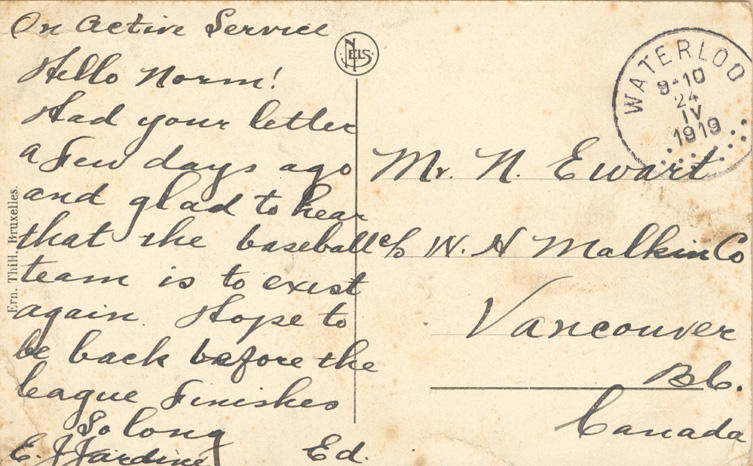 On Active Service
Hello Norm!
Had your letter
a few days ago
and glad to hear
that the baseball
team is to exist
again. Hope to
be back before the
league finishes
So long
E. J. Jardine Ed.
Ern. Thill, Bruxelles.
NELS
WATERLOO
9-10
24
IV
1919
Mr. N. Ewart
c/o W. H Malkin Co
Vancouver
B.C.
Canada